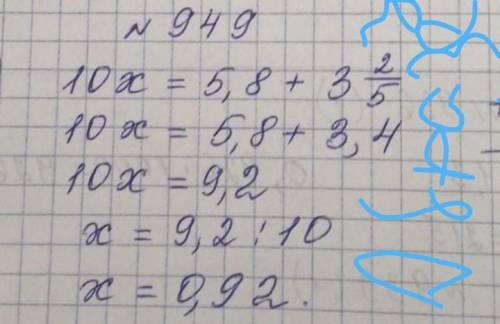 № 949
10x = 5,8 + 3 2/5
10x = 5,8 + 3,4
10x = 9,2
x = 9,2 : 10
x = 0,92.